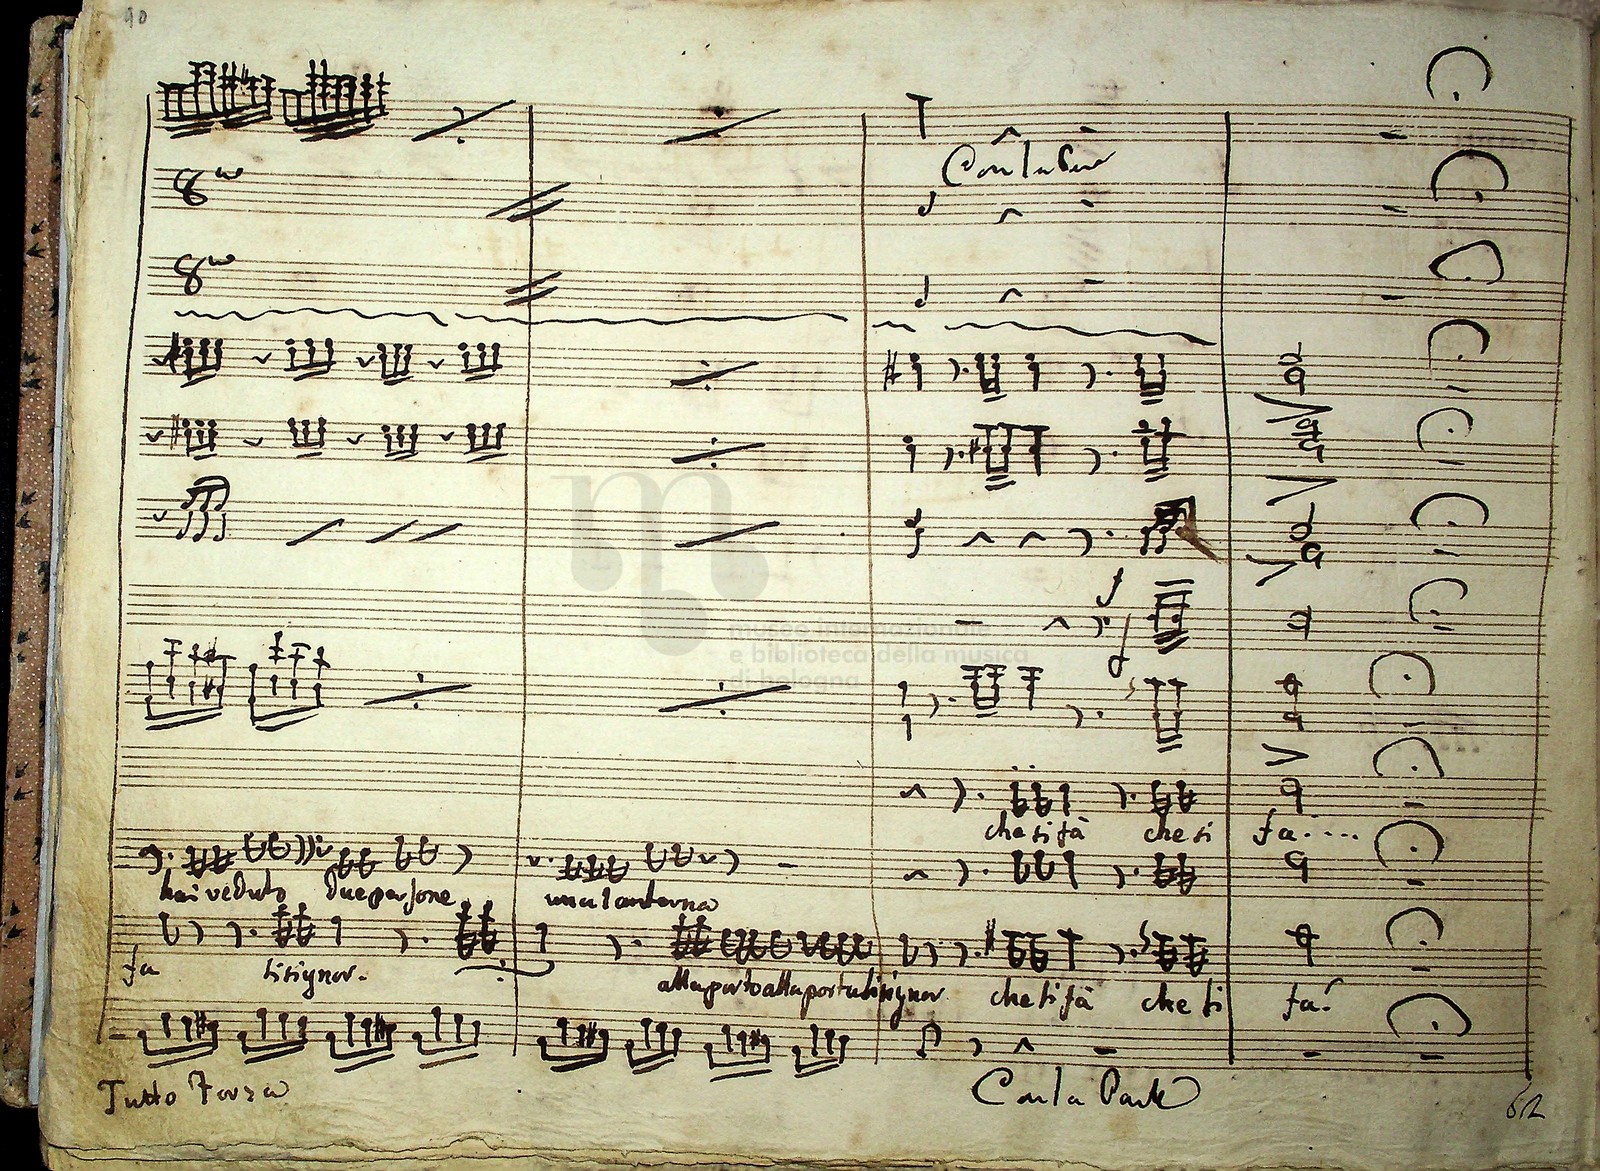 90
Con la Parte
8va
8va
museo internazionale
e biblioteca della musica
di bologna
che si fà che si fa....
hai veduto due persone una lanterna
fa si signor. alla porta alla porta si signor che si fà che si fa?
Tutto Forza
Con la Parte
62